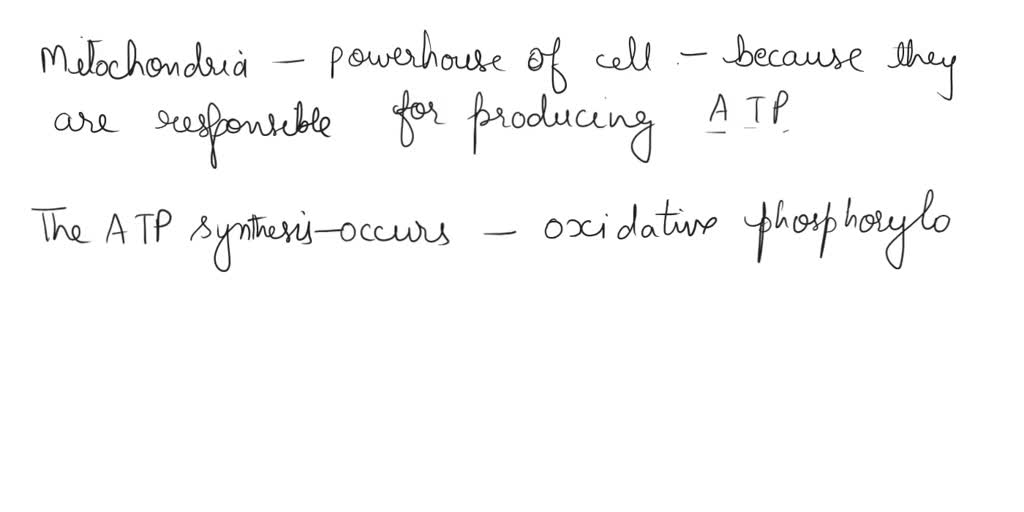 Mitochondria - powerhouse of cell - because they
are responsible for producing ATP
The ATP synthesis-occurs - oxidative phosphorylo